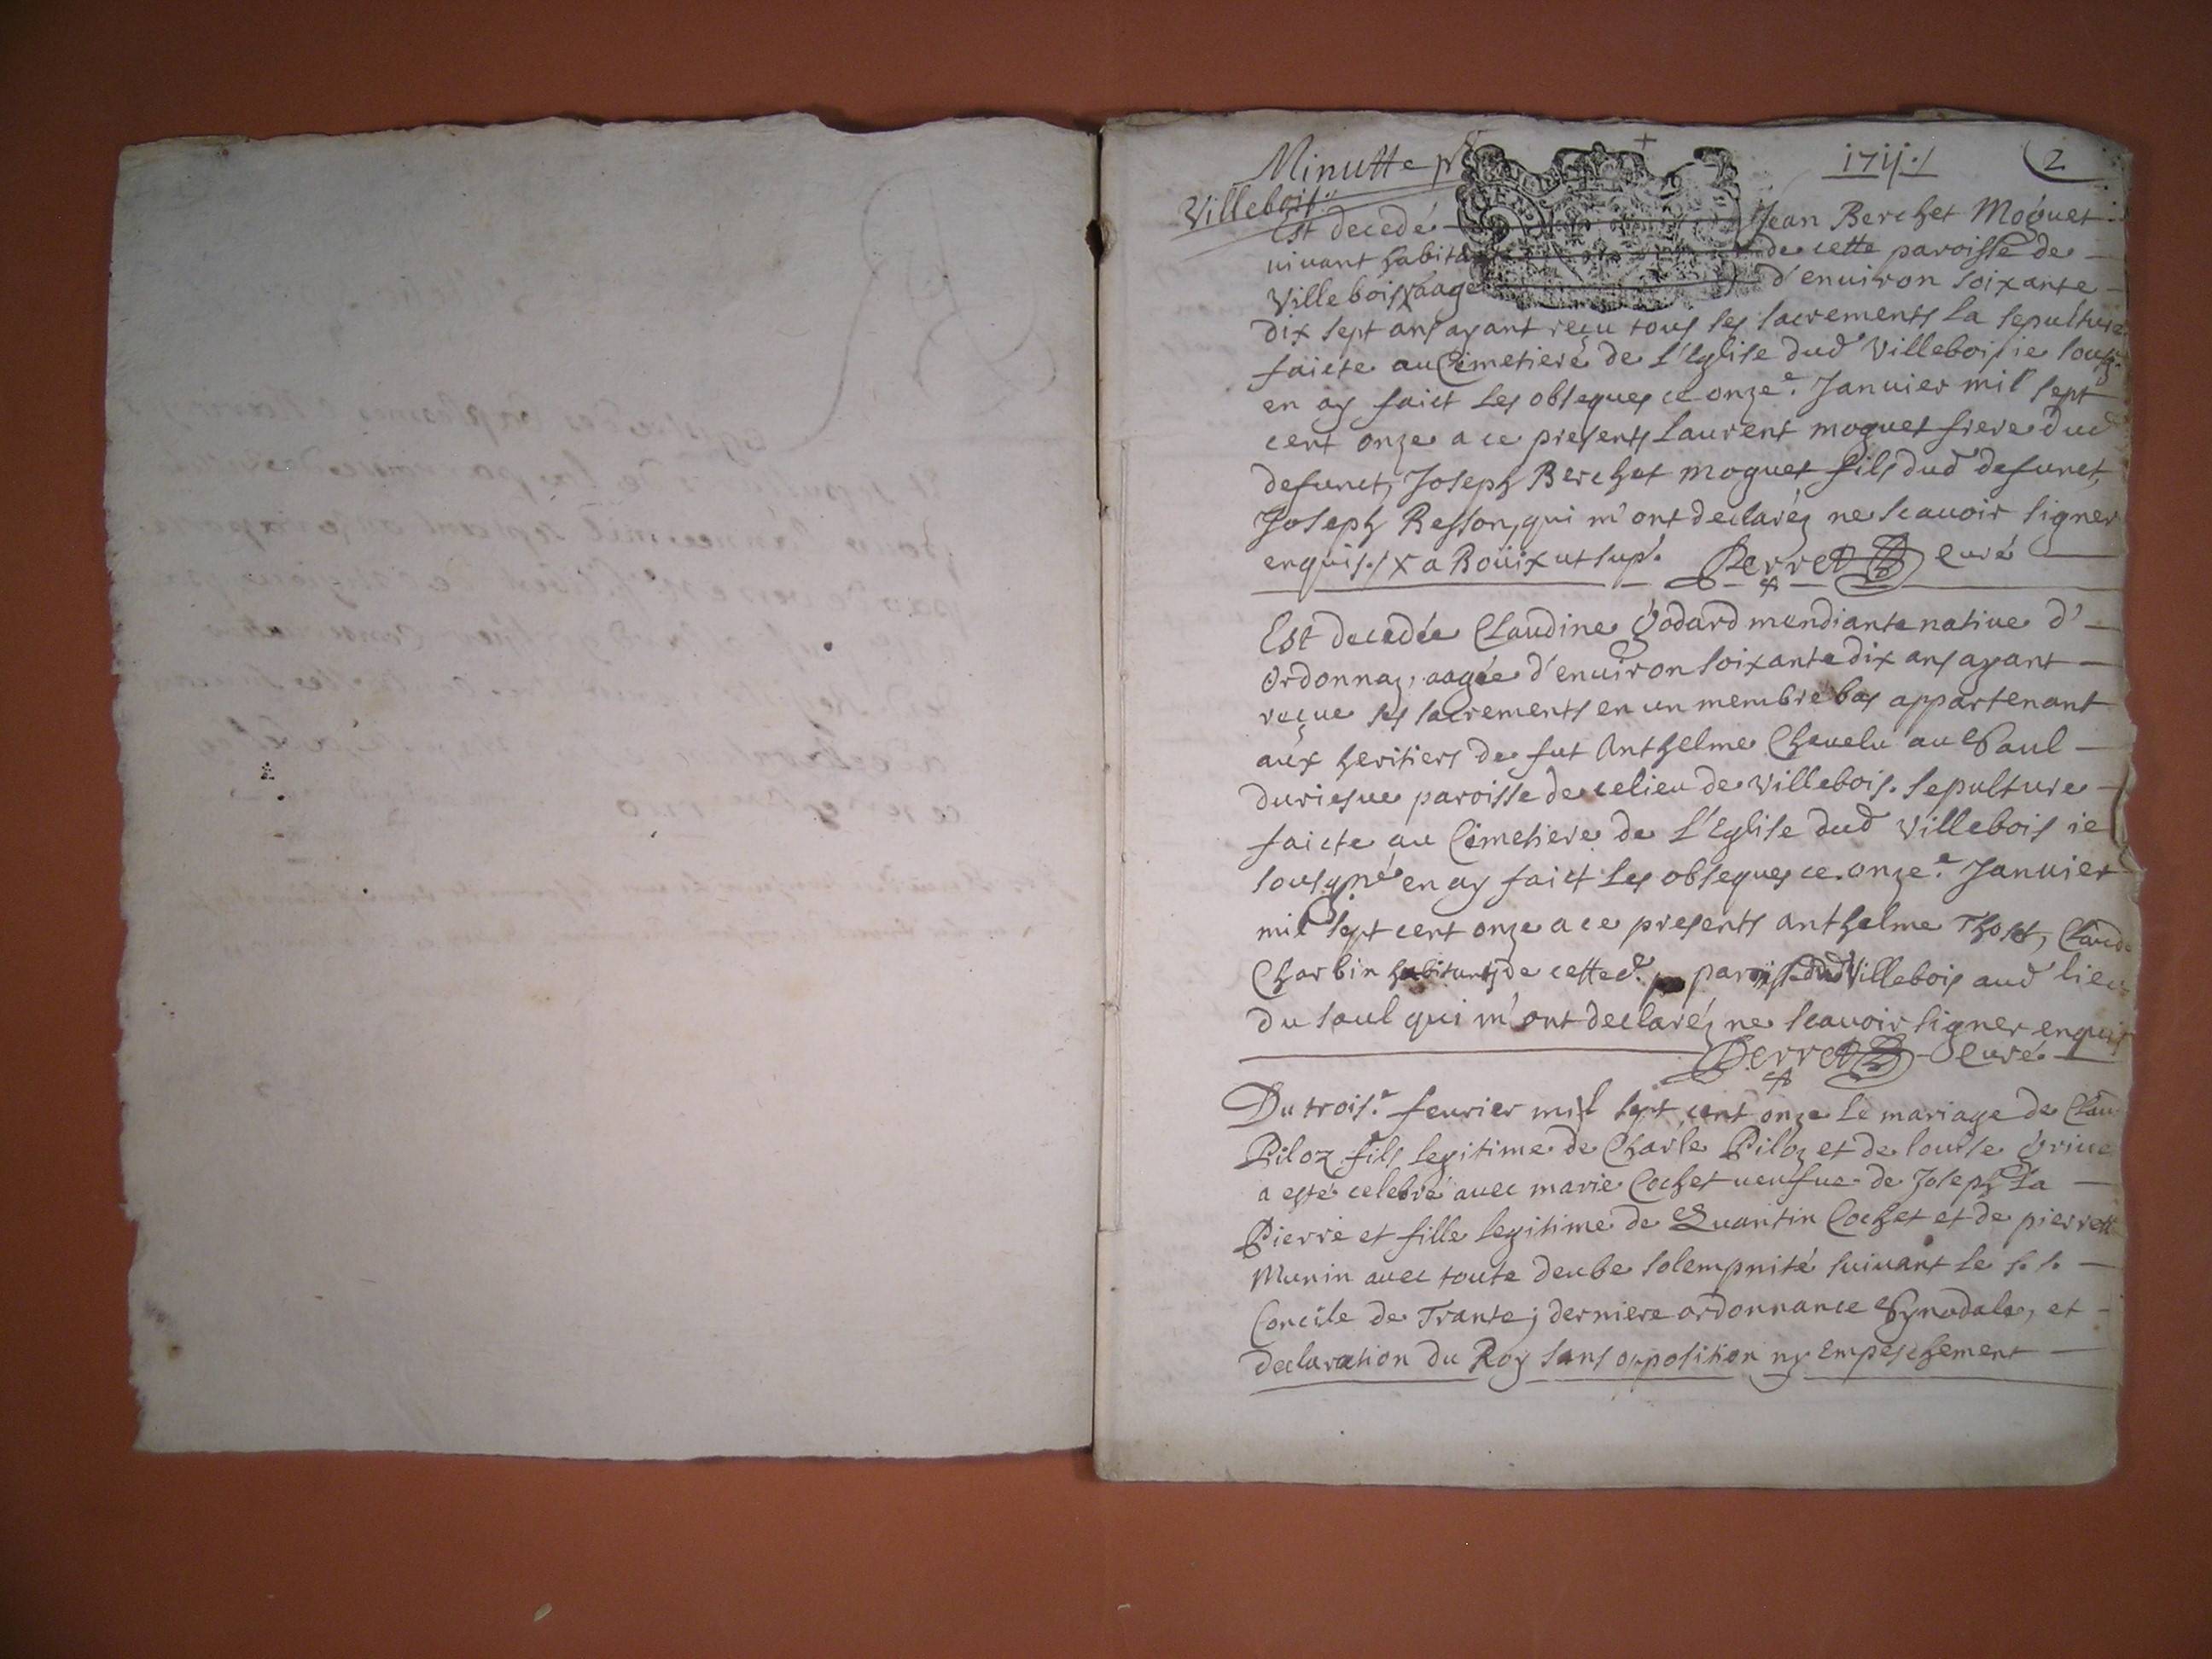 Minutte po^r 1711./ 2
Villebois./.
Est decedé Jean Berchet Moguet
uiuant habitant de cette paroisse de
Villebois x aagé d'enuiron soixante
dix sept ans ayant reçu tous ses sacrements La sepulture
faicte au Cimetiere de L'Eglise dud Villebois ie sousg.
en ay faict Les obseques ce onze.^e Januier mil sept
cent onze a ce presents Laurent moguet frere dud
defunct, Joseph Berchet moguet fils dud defunct,
Joseph Besson, qui m'ont declaréz ne scauoir signer
enquis./ x a Boüix ut sup.^a Perret Curé
Est decedée Claudine Godard mendiante natiue d'
Ordonnaz, aagée d'enuiron soixante dix ans ayant
reçue ses sacrements en un membre bas appartenant
aux heritiers de fut Anthelme Cheuelu au Saul
paroisse de ce lieu de Villebois. sepulture
faicte au Cimetiere de L'Eglise dud Villebois ie
sousigné en ay faict Les obseques ce onze.^e Januier
mil sept cent onze a ce presents anthelme Claude
Charbin habitants de cetted.^e paroisse dud Villebois aud lieu
du Saul qui m'ont declaréz ne scauoir signer enquis
Perret Curé.
Du trois.^e feurier mil sept cent onze Le mariage de Clau
Piloz fils legitime de Charle Piloz et de louise Griue
a esté celebré auec marie Cochet ueufue de Joseph La
Pierre et fille legitime de Quantin Cochet et de pierrette
Munin auec toute deube solempnité suiuant le s. s.
Concile de Trante; derniere ordonnance Synodale, et
declaration du Roy sans opposition ny Empeschement